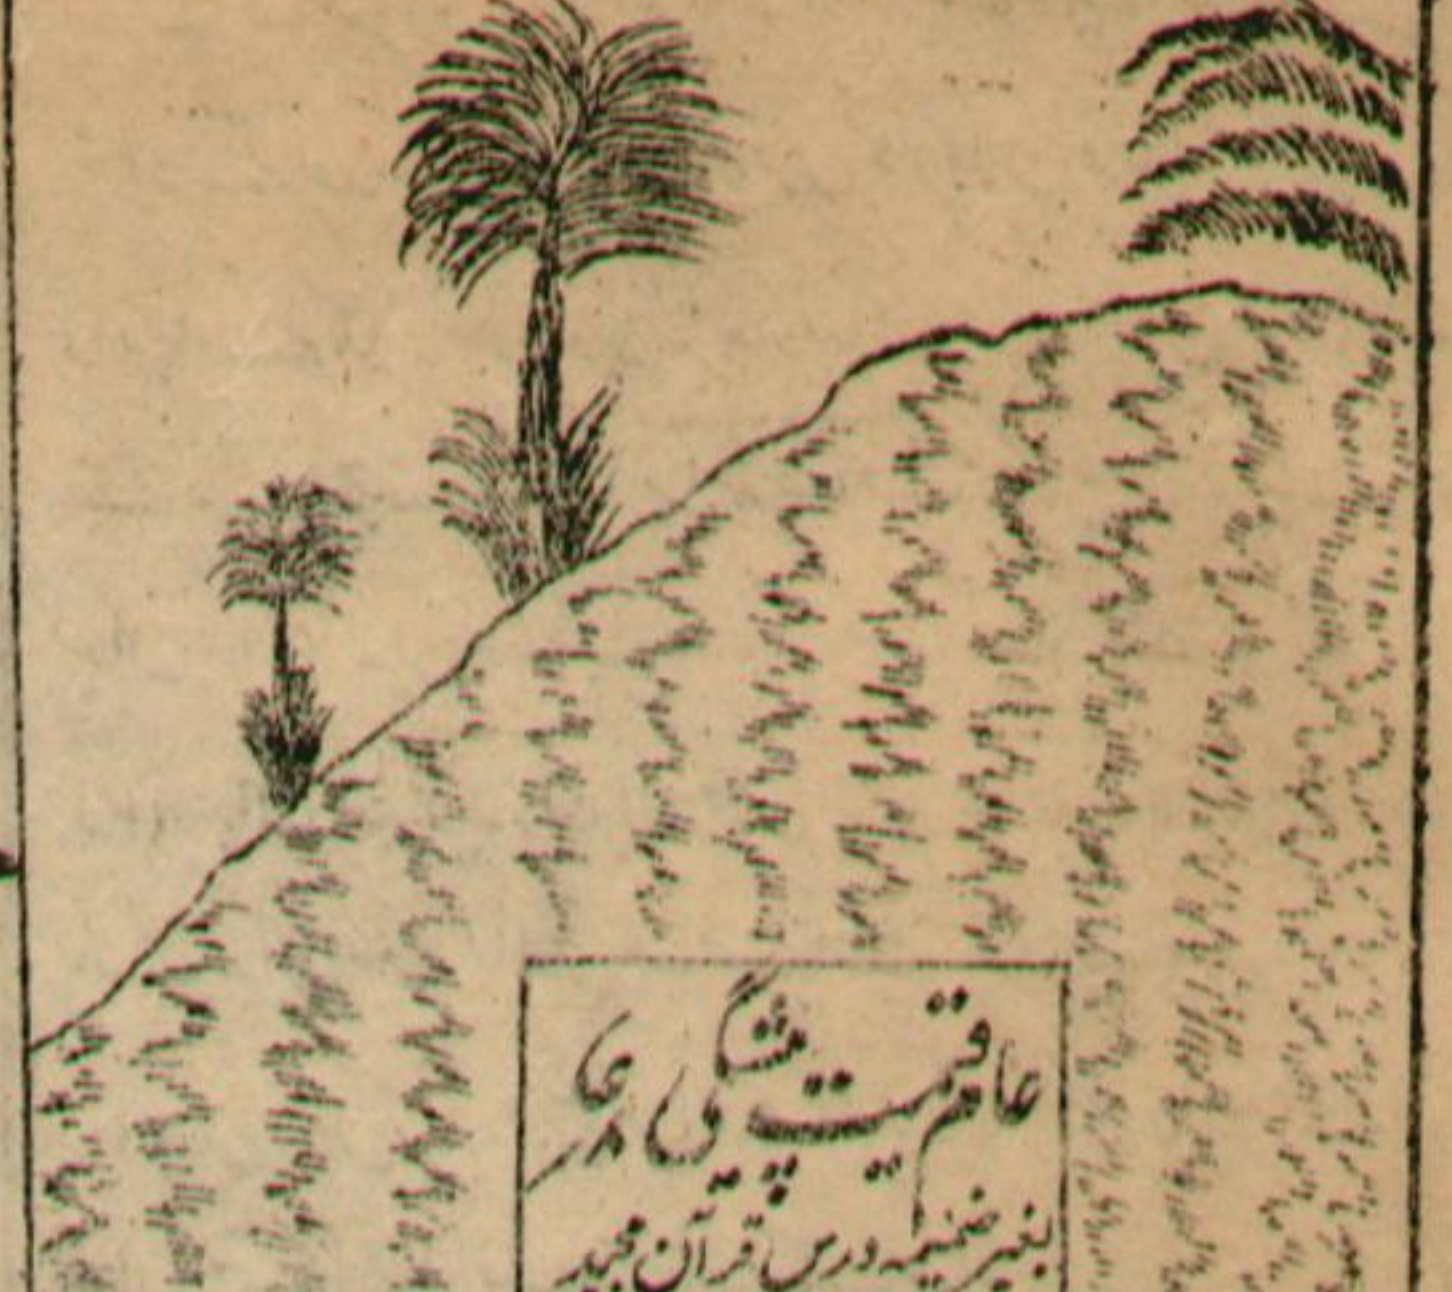 عام قیمت پیشگی ۸؍
بغیر ضمیمہ درس قرآن مجید